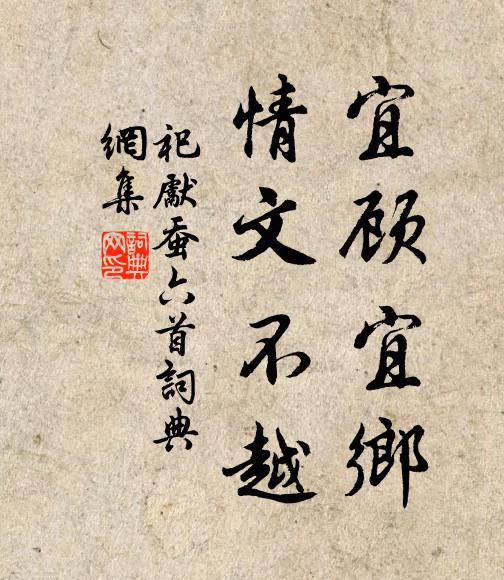 宜顧宜鄉
情文不越
祀獻蚕六首詞典
網集
詞典
网印